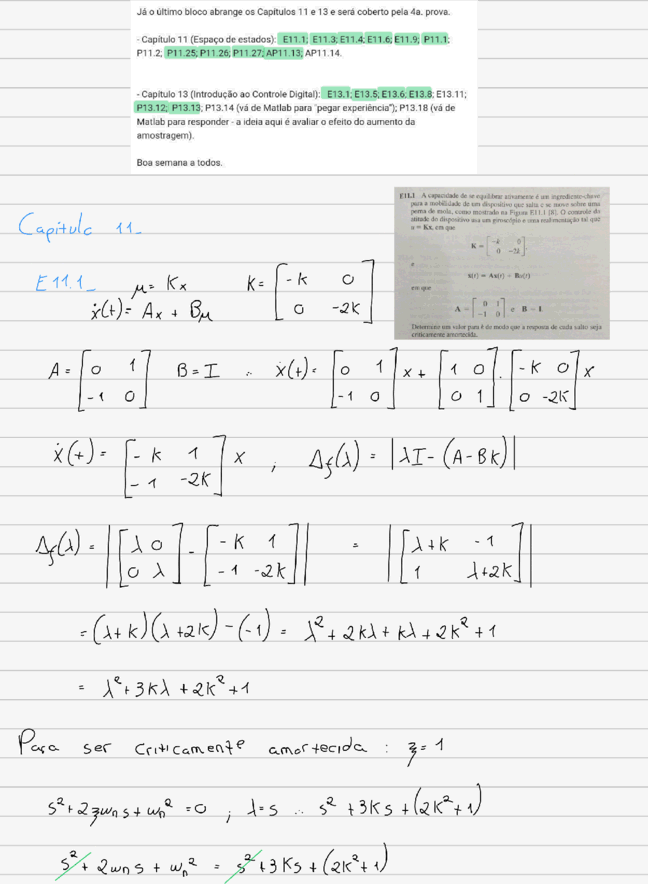 Já o último bloco abrange os Capítulos 11 e 13 e será coberto pela 4a. prova.
- Capítulo 11 (Espaço de estados): E11.1; E11.3; E11.4; E11.6; E11.9; P11.1;
P11.2; P11.25; P11.26; P11.27; AP11.13; AP11.14.
- Capítulo 13 (Introdução ao Controle Digital): E13.1; E13.5; E13.6; E13.8; E13.11;
P13.12; P13.13; P13.14 (vá de Matlab para "pegar experiência"); P13.18 (vá de
Matlab para responder - a ideia aqui é avaliar o efeito do aumento da
amostragem).
Boa semana a todos.
E11.1 A capacidade de se equilibrar ativamente é um ingrediente-chave
para a mobilidade de um dispositivo que salta e se move sobre uma
perna de mola, como mostrado na Figura E11.1 [8]. O controle da
atitude do dispositivo usa um giroscópio e uma realimentação tal que
u = Kx, em que
K = [-k 0; 0 -2k]
e
ẋ(t) = Ax(t) + Bu(t)
em que
A = [0 1; -1 0] e B = I.
Determine um valor para k de modo que a resposta de cada salto seja
criticamente amortecida.
Capitulo 11_
E11.1_ μ = Kx K = [-K 0; 0 -2K]
ẋ(t) = Ax + Bμ
A = [0 1; -1 0] B = I ∴ ẋ(t) = [0 1; -1 0] x + [1 0; 0 1] · [-K 0; 0 -2K] x
ẋ(t) = [-K 1; -1 -2K] x ; Δf(λ) = |λI - (A - BK)|
Δf(λ) = |[λ 0; 0 λ] - [-K 1; -1 -2K]| = |[λ+K -1; 1 λ+2K]|
= (λ+K)(λ+2K) - (-1) = λ² + 2Kλ + Kλ + 2K² + 1
= λ² + 3Kλ + 2K² + 1
Para ser criticamente amortecida : ξ = 1
s² + 2ξωn s + ωn² = 0 ; λ = s ∴ s² + 3Ks + (2K² + 1)
s² + 2ωn s + ωn² = s² + 3Ks + (2K² + 1)